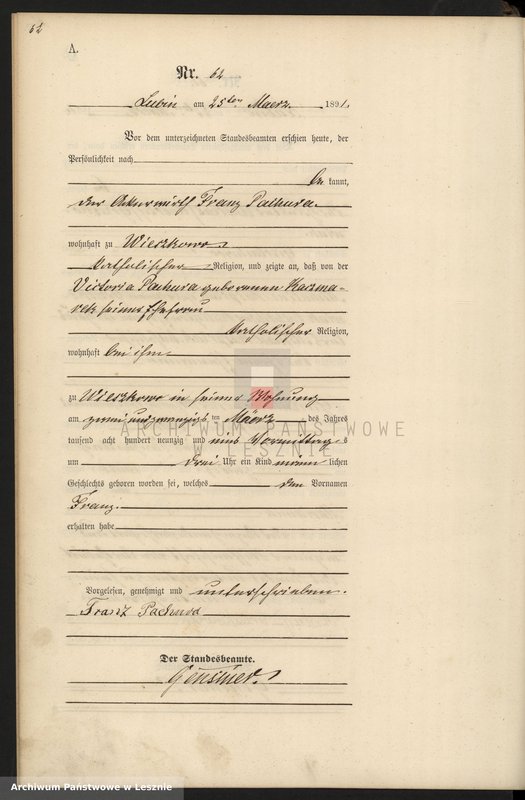 62
A.
Nr. 62
Lubin am 25ten Maerz 1891.
Vor dem unterzeichneten Standesbeamten erschien heute, der
Persönlichkeit nach
be kannt,
der Ackerwirth Franz Pachura
wohnhaft zu Wieszkowo
katholischer Religion, und zeigte an, daß von der
Victoria Pachura geborenen Kaczma-
rek seiner Ehefrau
katholischer Religion,
wohnhaft bei ihm
zu Wieszkowo in seiner Wohnung
am zwei und zwanzigsten Maerz des Jahres
tausend acht hundert neunzig und eins Vormittags
um drei Uhr ein Kind männlichen
Geschlechts geboren worden sei, welches den Vornamen
Franz
erhalten habe
Vorgelesen, genehmigt und unterschrieben.
Franz Pachura
Der Standesbeamte.
ARCHIWUM PAŃSTWOWE
W LESZNIE
Archiwum Państwowe w Lesznie